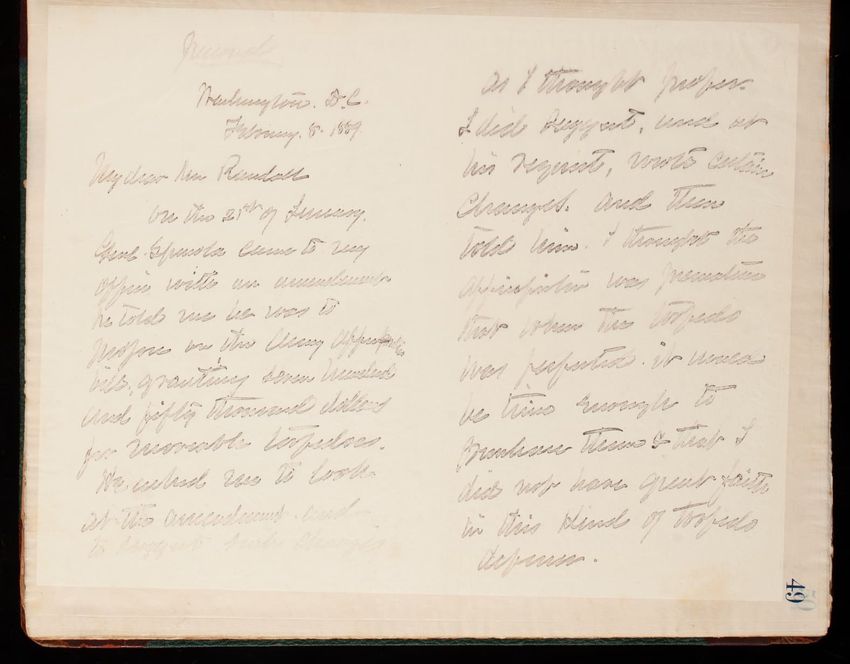 Personal
Washington. D.C.
February. 8. 1889.
My dear Mr Randall
On the 21st of January.
Genl. Spinola came to my
office with an amendment
he told me he was to
propose on the Army Appropriation
bill, granting seven hundred
and fifty thousand dollars
for movable torpedoes.
He asked me to look
at the amendment and
to suggest such changes
as I thought proper.
I did suggest, and at
his request, wrote certain
changes. And then
told him. I thought the
appropriation was premature
that when the torpedo
was perfected. it would
be time enough to
purchase them & that I
did not have great faith
in this kind of torpedo
defense.
49